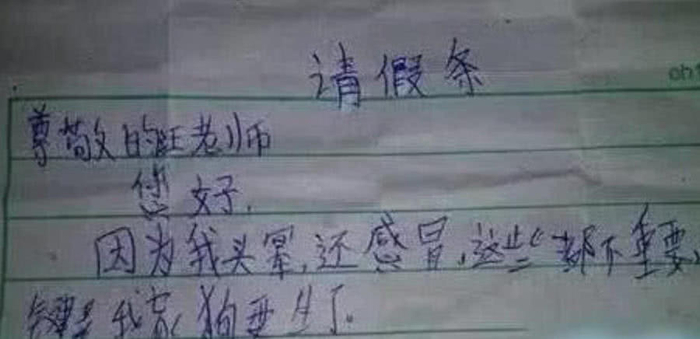 请假条
尊敬的汪老师
您好.
因为我头晕,还感冒,这些都不重要,
关键是我家狗要生了.